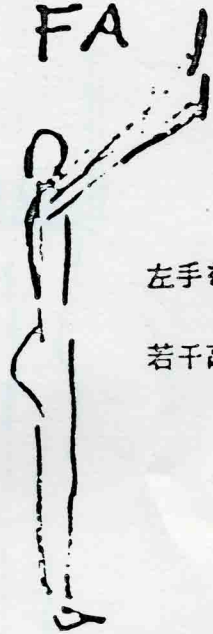 FA
左手
若干高